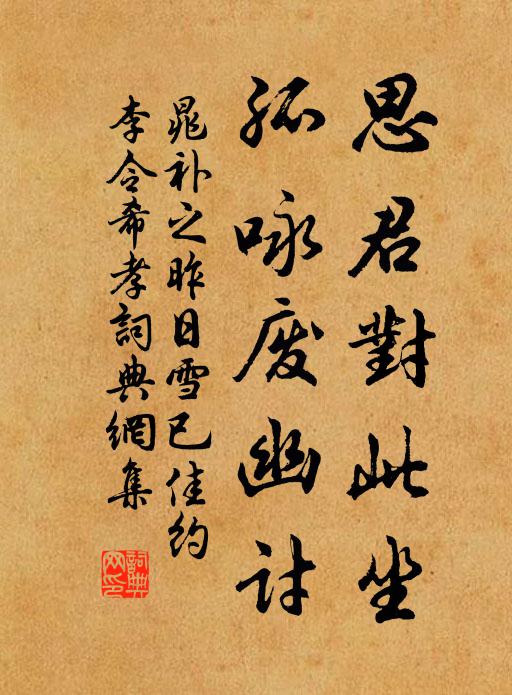 思君對此坐
孤咏废幽讨
晁补之昨日雪已佳约
李令希孝詞典網集
詞典网印